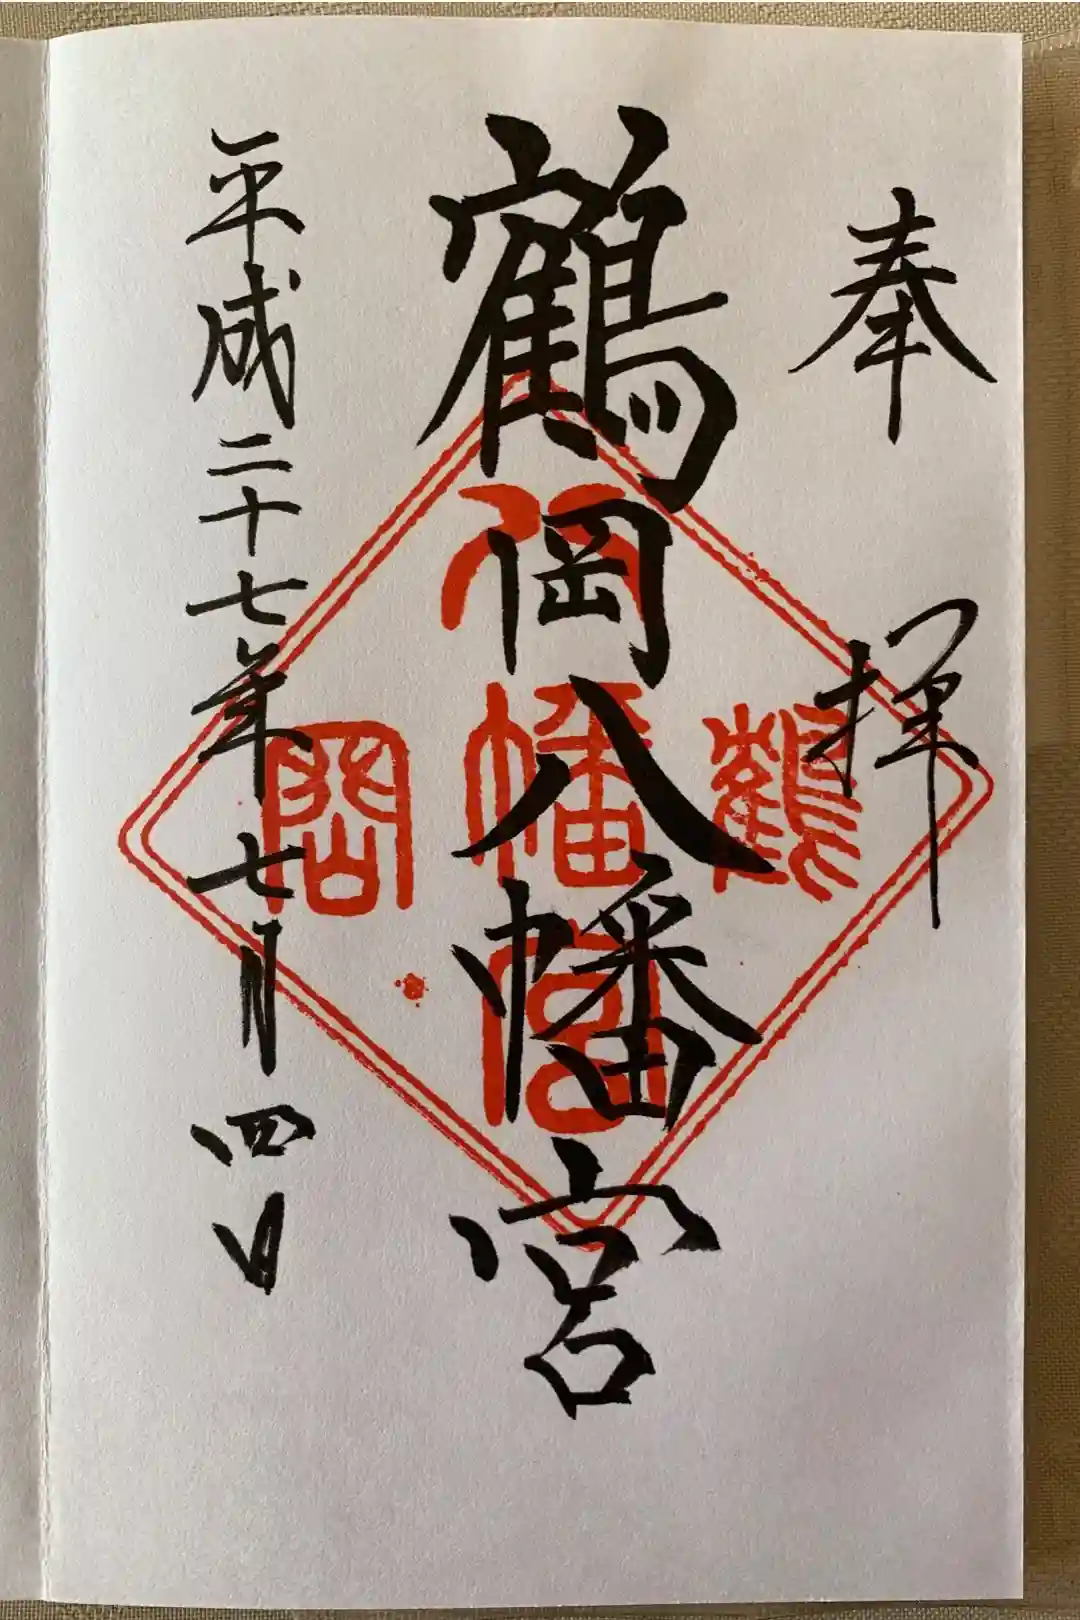 奉拝
鶴岡八幡宮
平成二十七年七月四日
鶴
八
幡
宮
岡